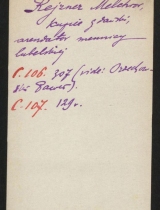 Kejzner Melchior,
kupiec gdański,
arendator mennicy
lubelskiej
C. 106. 307 (vide: Orzechow-
ski Paweł).
C-107. 129v.